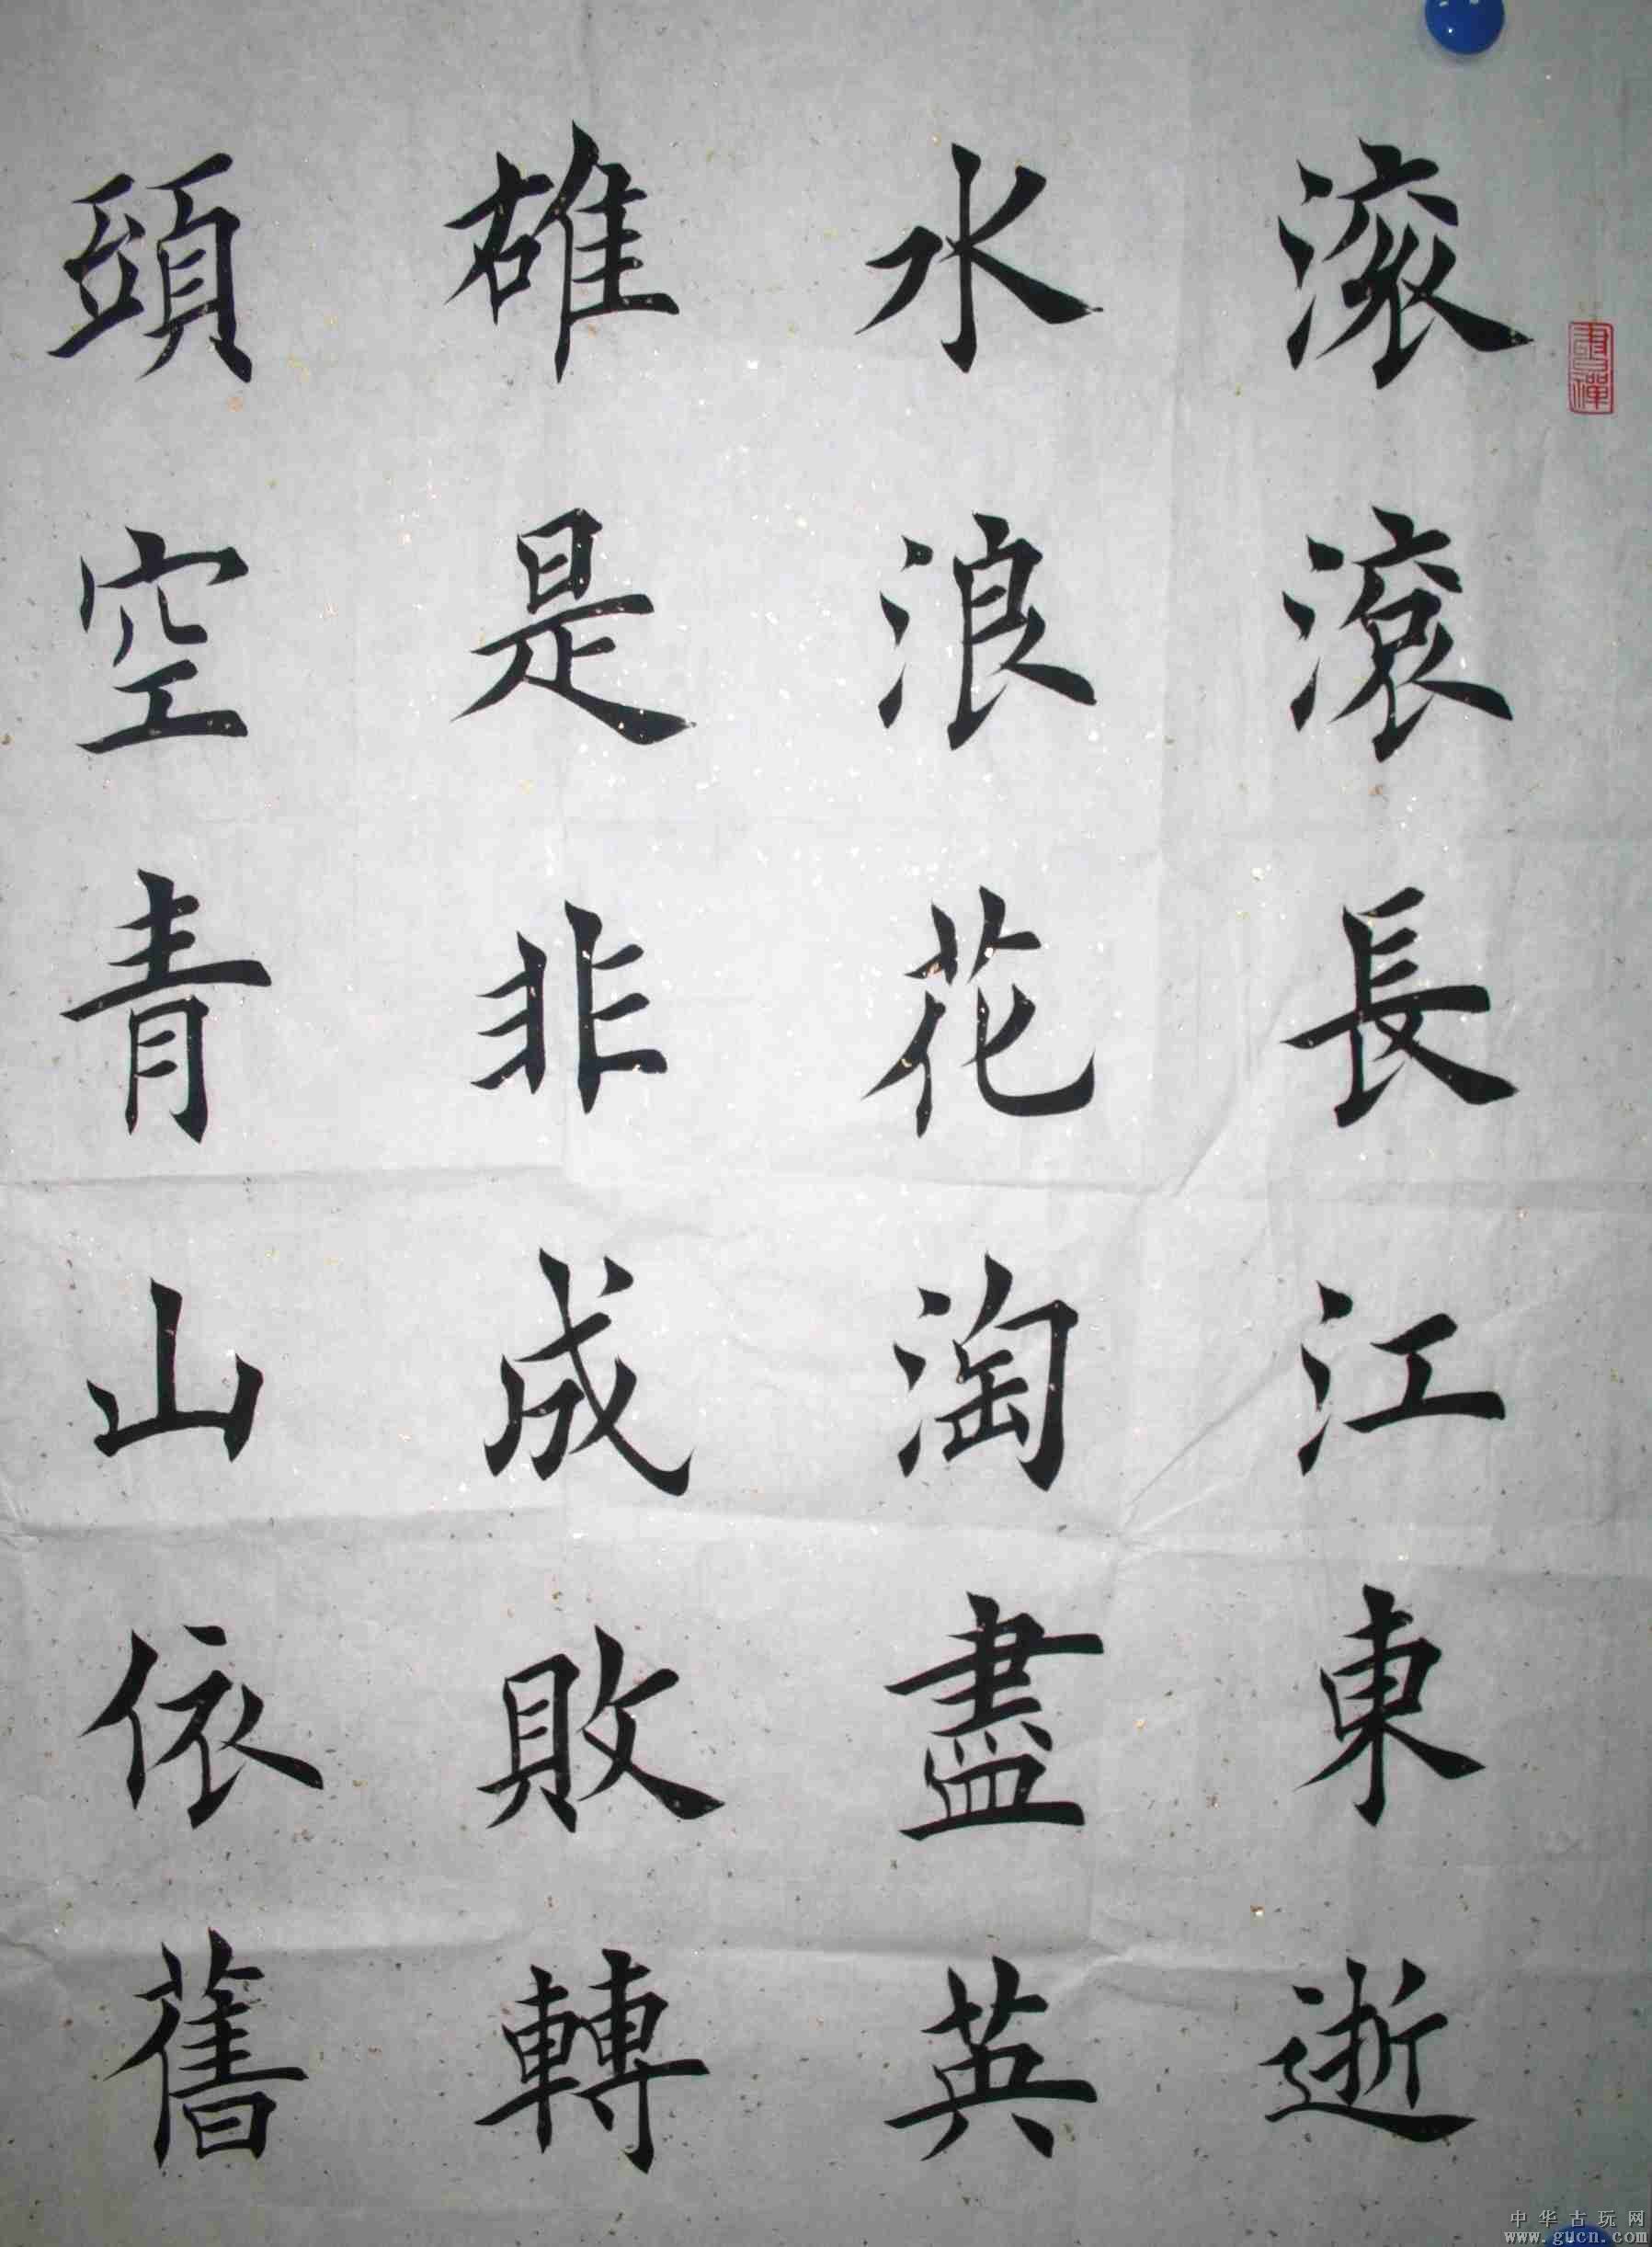 滚滚長江東逝
水浪花淘盡英
雄是非成敗轉
頭空青山依舊
中华古玩网
www.gucn.com